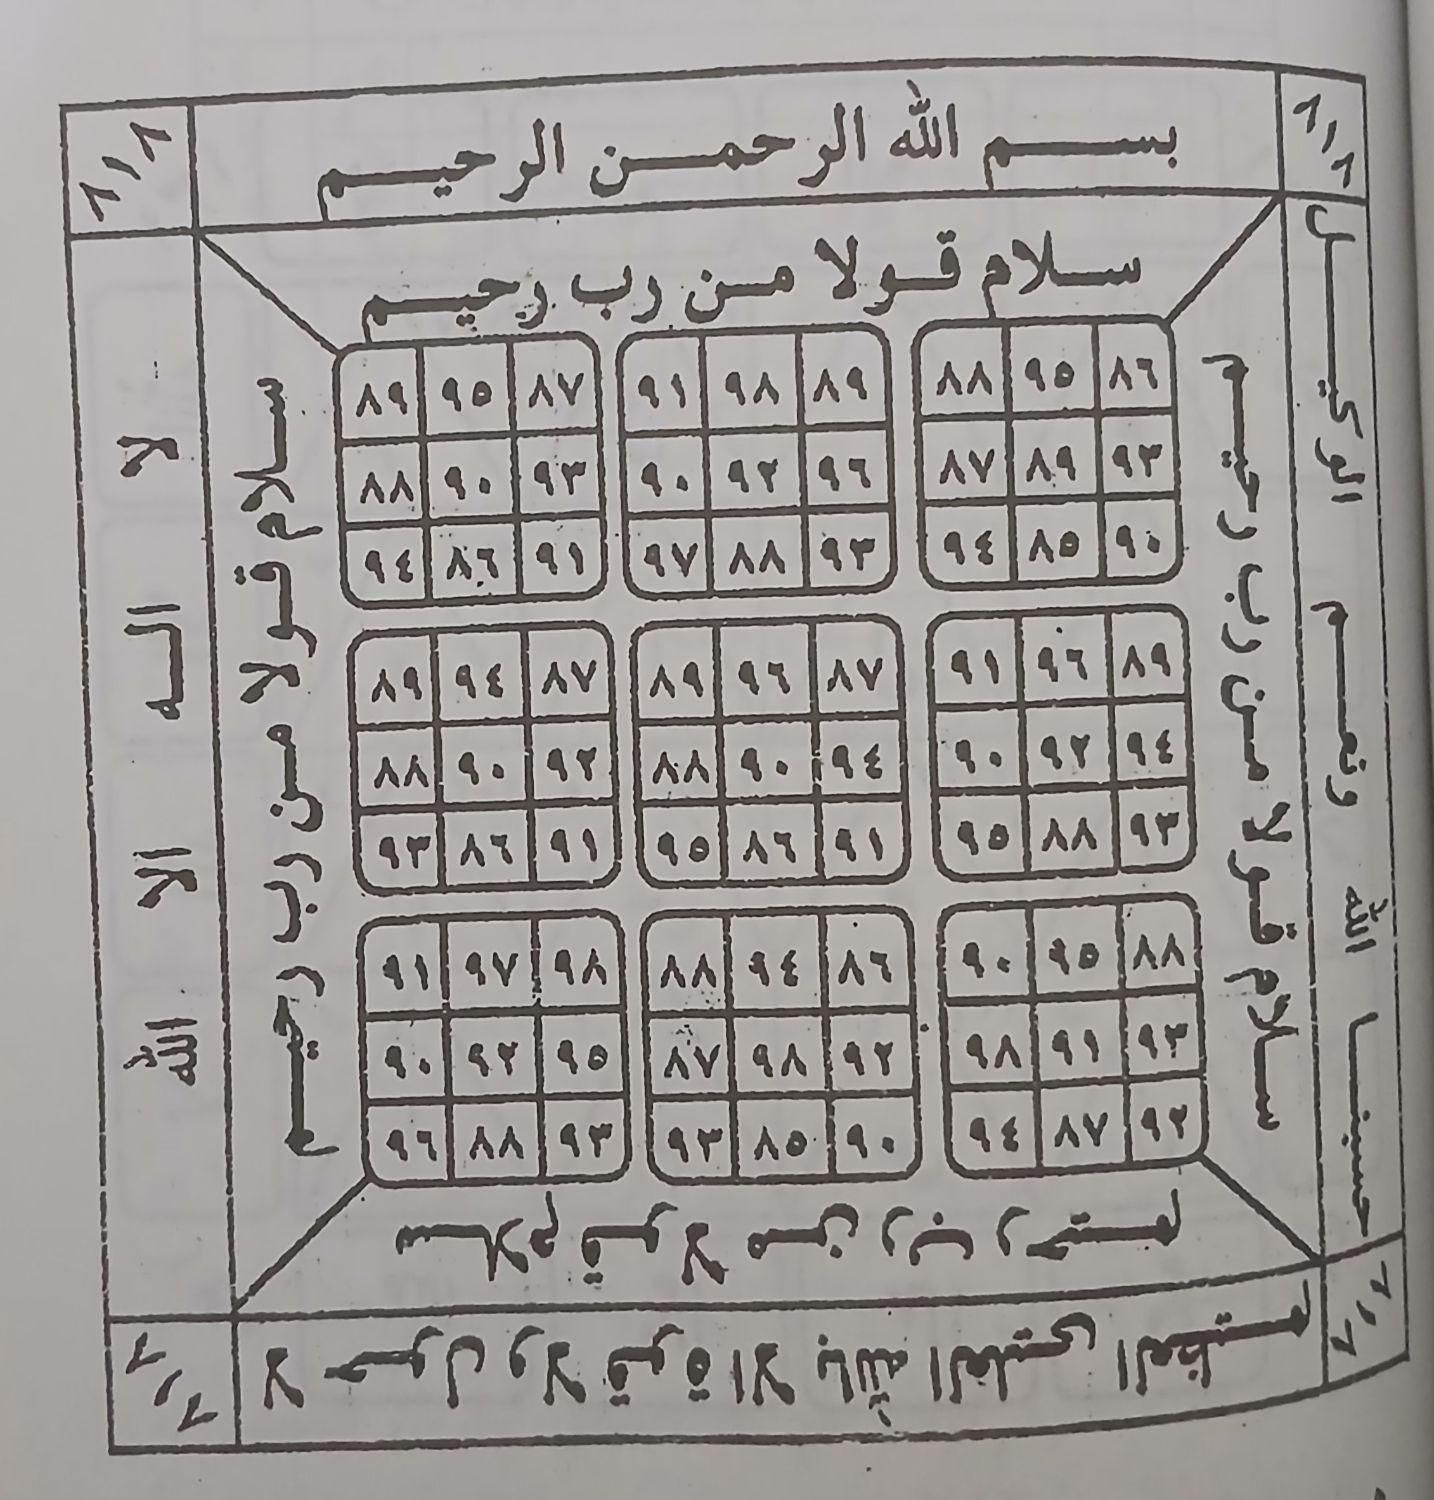 ٨١٨
بسم الله الرحمن الرحيم
٨١٨
سلام قولا من رب رحيم
سلام قولا من رب رحيم
سلام قولا من رب رحيم
سلام قولا من رب رحيم
حسبنا الله ونعم الوكيل
لا اله الا الله
٨٩ ٩٥ ٨٧ ٩١ ٩٨ ٨٩ ٨٨ ٩٥ ٨٦
٨٨ ٩٠ ٩٣ ٩٠ ٩٢ ٩٦ ٨٧ ٨٩ ٩٣
٩٤ ٨٦ ٩١ ٩٧ ٨٨ ٩٣ ٩٤ ٨٥ ٩٠
٨٩ ٩٤ ٨٧ ٨٩ ٩٦ ٨٧ ٩١ ٩٦ ٨٩
٨٨ ٩٠ ٩٢ ٨٨ ٩٠ ٩٤ ٩٠ ٩٢ ٩٤
٩٣ ٨٦ ٩١ ٩٥ ٨٦ ٩١ ٩٥ ٨٨ ٩٣
٩١ ٩٧ ٩٨ ٨٨ ٩٤ ٨٦ ٩٠ ٩٥ ٨٨
٩٠ ٩٢ ٩٥ ٨٧ ٩٨ ٩٢ ٩٨ ٩١ ٩٣
٩٦ ٨٨ ٩٣ ٩٣ ٨٥ ٩٠ ٩٤ ٨٧ ٩٢
لا حول ولا قوة الا بالله العلي العظيم